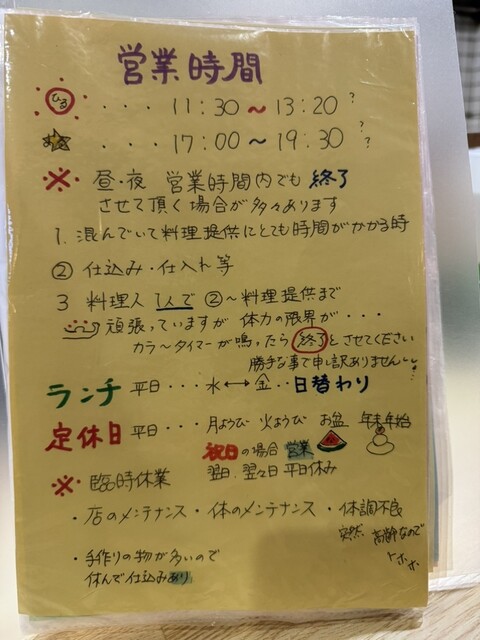 営業時間
ひる ・・・ 11:30 ~ 13:20 ?
よる ・・・ 17:00 ~ 19:30 ? ?
※ 昼・夜 営業時間内でも 終了
させて頂く場合が多々あります
1. 混んでいて料理提供にとても時間がかかる時
② 仕込み・仕入れ等
3 料理人 1人で ②~料理提供まで
頑張っていますが 体力の限界が・・・
カラ~タイマーが鳴ったら 終了とさせてください
勝手な事で申し訳ありません
ランチ 平日・・・水↔金・・日替わり
定休日 平日・・・月ようび 火ようび お盆 年末年始
祝日の場合 営業
翌日、翌々日 平日休み
※ 臨時休業
・店のメンテナンス・体のメンテナンス・体調不良
突然 高齢なので
トホホ
・手作りの物が多いので
休んで仕込みあり